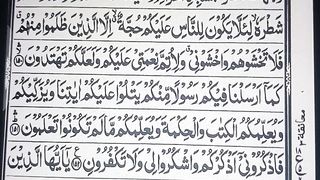 شَطْرَهٗ ۙ لِئَلَّا يَكُوْنَ لِلنَّاسِ عَلَيْكُمْ حُجَّةٌ ۙ اِلَّا الَّذِيْنَ ظَلَمُوْا مِنْهُمْ
فَلَا تَخْشَوْهُمْ وَاخْشَوْنِيْ وَلِاُتِمَّ نِعْمَتِيْ عَلَيْكُمْ وَلَعَلَّكُمْ تَهْتَدُوْنَ ۝١٥٠
كَمَآ اَرْسَلْنَا فِيْكُمْ رَسُوْلًا مِّنْكُمْ يَتْلُوْا عَلَيْكُمْ اٰيٰتِنَا وَيُزَكِّيْكُمْ
وَيُعَلِّمُكُمُ الْكِتٰبَ وَالْحِكْمَةَ وَيُعَلِّمُكُمْ مَّا لَمْ تَكُوْنُوْا تَعْلَمُوْنَ ۝١٥١
فَاذْكُرُوْنِيْٓ اَذْكُرْكُمْ وَاشْكُرُوْا لِيْ وَلَا تَكْفُرُوْنِ ۝١٥٢ يٰٓاَيُّهَا الَّذِيْنَ
معانقة ٢